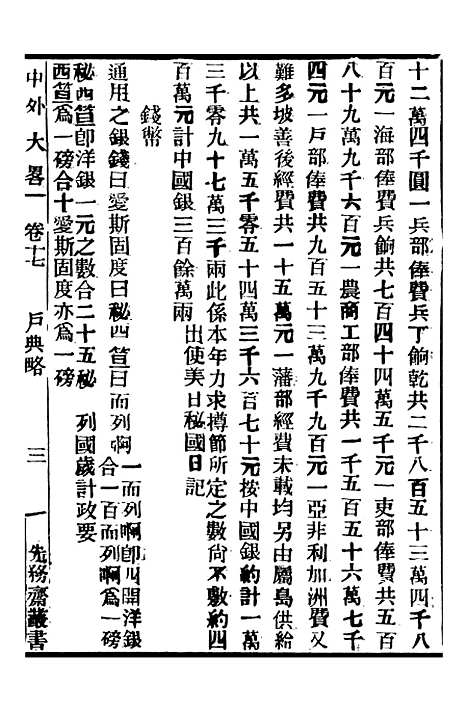 十二萬四千圓一兵部俸費兵丁餉乾共二千八百五十三萬四千八
百元一海部俸費兵餉共七百四十四萬五千元一吏部俸費共五百
八十九萬九千六百元一農商工部俸費共一千五百五十六萬七千
四元一戶部俸費共九百五十三萬九千九百元一亞非利加洲費又
難多坡善後經費共一十五萬元一藩部經費未載均另由屬島供給
以上共一萬五千零五十四萬三千六百七十元按中國銀約計一萬
三千零九十七萬三千兩此係本年力求撙節所定之數尙不敷約四
百萬元計中國銀三百餘萬兩 出使美日秘國日記
錢幣
通用之銀錢曰愛斯固度曰秘西笪曰而列啊 一而列啊卽四開洋銀合一百而列啊爲一磅
秘西笪卽洋銀一元之數合二十五秘西笪爲一磅合十愛斯固度亦爲一磅 列國歲計政要
中外大畧一 卷十七 戶典略 三 一 先務齋叢書